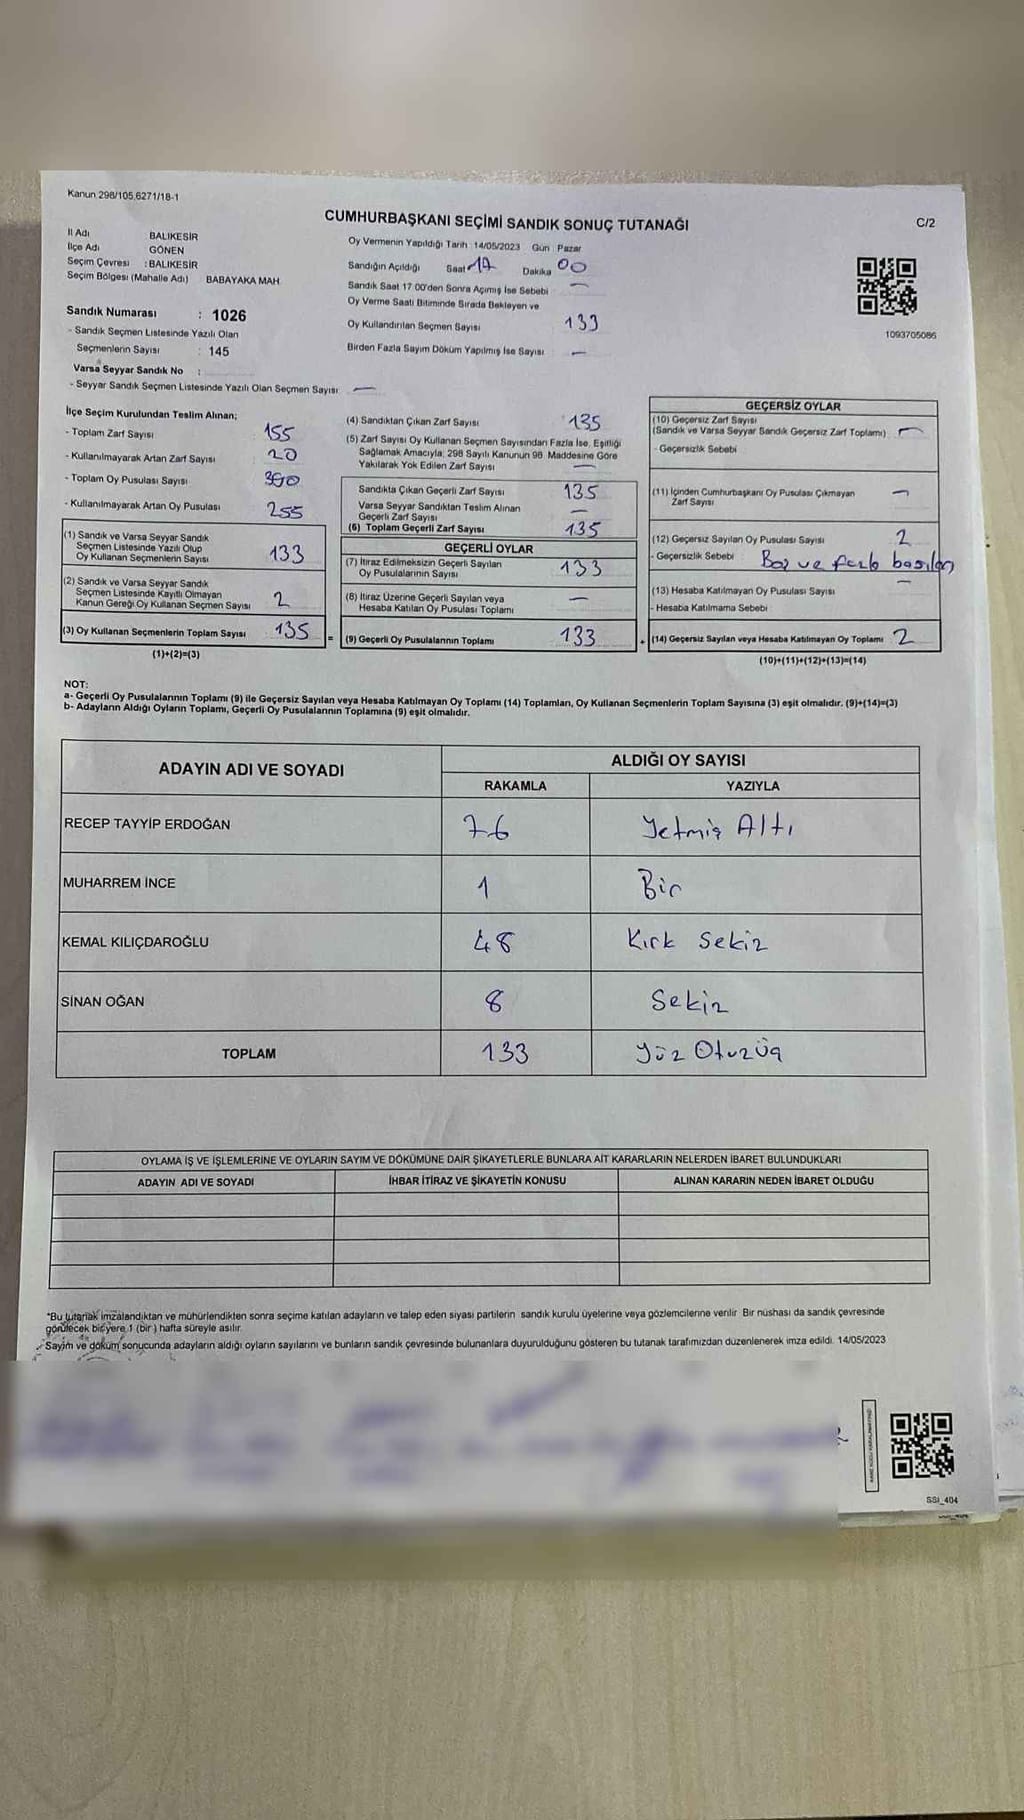 Kanun 298/105,6271/18-1
CUMHURBAŞKANI SEÇİMİ SANDIK SONUÇ TUTANAĞI
C/2
İl Adı BALIKESİR
İlçe Adı GÖNEN
Seçim Çevresi : BALIKESİR
Seçim Bölgesi (Mahalle Adı) BABAYAKA MAH.
Oy Vermenin Yapıldığı Tarih : 14/05/2023 Gün : Pazar
Sandığın Açıldığı Saat 17 Dakika 00
Sandık Saat 17:00'den Sonra Açımış İse Sebebi —
Oy Verme Saati Bitiminde Sırada Bekleyen ve
Oy Kullandırılan Seçmen Sayısı 133
Birden Fazla Sayım Döküm Yapılmış İse Sayısı —
1093705086
Sandık Numarası : 1026
- Sandık Seçmen Listesinde Yazılı Olan
Seçmenlerin Sayısı : 145
Varsa Seyyar Sandık No :
- Seyyar Sandık Seçmen Listesinde Yazılı Olan Seçmen Sayısı —
İlçe Seçim Kurulundan Teslim Alınan;
- Toplam Zarf Sayısı 155
- Kullanılmayarak Artan Zarf Sayısı 20
- Toplam Oy Pusulası Sayısı 390
- Kullanılmayarak Artan Oy Pusulası 255
(1) Sandık ve Varsa Seyyar Sandık
Seçmen Listesinde Yazılı Olup
Oy Kullanan Seçmenlerin Sayısı 133
(2) Sandık ve Varsa Seyyar Sandık
Seçmen Listesinde Kayıtlı Olmayan
Kanun Gereği Oy Kullanan Seçmen Sayısı 2
(3) Oy Kullanan Seçmenlerin Toplam Sayısı 135 =
(1)+(2)=(3)
(4) Sandıktan Çıkan Zarf Sayısı 135
(5) Zarf Sayısı Oy Kullanan Seçmen Sayısından Fazla İse, Eşitliği
Sağlamak Amacıyla; 298 Sayılı Kanunun 98. Maddesine Göre
Yakılarak Yok Edilen Zarf Sayısı —
Sandıkta Çıkan Geçerli Zarf Sayısı 135
Varsa Seyyar Sandıktan Teslim Alınan
Geçerli Zarf Sayısı —
(6) Toplam Geçerli Zarf Sayısı 135
GEÇERLİ OYLAR
(7) İtiraz Edilmeksizin Geçerli Sayılan
Oy Pusulalarının Sayısı 133
(8) İtiraz Üzerine Geçerli Sayılan veya
Hesaba Katılan Oy Pusulası Toplamı —
(9) Geçerli Oy Pusulalarının Toplamı 133 +
GEÇERSİZ OYLAR
(10) Geçersiz Zarf Sayısı
(Sandık ve Varsa Seyyar Sandık Geçersiz Zarf Toplamı) —
- Geçersizlik Sebebi
(11) İçinden Cumhurbaşkanı Oy Pusulası Çıkmayan
Zarf Sayısı —
(12) Geçersiz Sayılan Oy Pusulası Sayısı 2
- Geçersizlik Sebebi Boş ve fazla basılan
(13) Hesaba Katılmayan Oy Pusulası Sayısı —
- Hesaba Katılmama Sebebi
(14) Geçersiz Sayılan veya Hesaba Katılmayan Oy Toplamı 2
(10)+(11)+(12)+(13)=(14)
NOT:
a- Geçerli Oy Pusulalarının Toplamı (9) ile Geçersiz Sayılan veya Hesaba Katılmayan Oy Toplamı (14) Toplamları, Oy Kullanan Seçmenlerin Toplam Sayısına (3) eşit olmalıdır. (9)+(14)=(3)
b- Adayların Aldığı Oyların Toplamı, Geçerli Oy Pusulalarının Toplamına (9) eşit olmalıdır.
ADAYIN ADI VE SOYADI ALDIĞI OY SAYISI
RAKAMLA YAZIYLA
RECEP TAYYİP ERDOĞAN 76 Yetmiş Altı
MUHARREM İNCE 1 Bir
KEMAL KILIÇDAROĞLU 48 Kırk Sekiz
SİNAN OĞAN 8 Sekiz
TOPLAM 133 Yüz Otuzüç
OYLAMA İŞ VE İŞLEMLERİNE VE OYLARIN SAYIM VE DÖKÜMÜNE DAİR ŞİKAYETLERLE BUNLARA AİT KARARLARIN NELERDEN İBARET BULUNDUKLARI
ADAYIN ADI VE SOYADI İHBAR İTİRAZ VE ŞİKAYETİN KONUSU ALINAN KARARIN NEDEN İBARET OLDUĞU
*Bu tutanak imzalandıktan ve mühürlendikten sonra seçime katılan adayların ve talep eden siyasi partilerin sandık kurulu üyelerine veya gözlemcilerine verilir. Bir nüshası da sandık çevresinde
görülecek bir yere 1 (bir) hafta süreyle asılır.
Sayım ve döküm sonucunda adayların aldığı oyların sayılarını ve bunların sandık çevresinde bulunanlara duyurulduğunu gösteren bu tutanak tarafımızdan düzenlenerek imza edildi. 14/05/2023
SSI_404